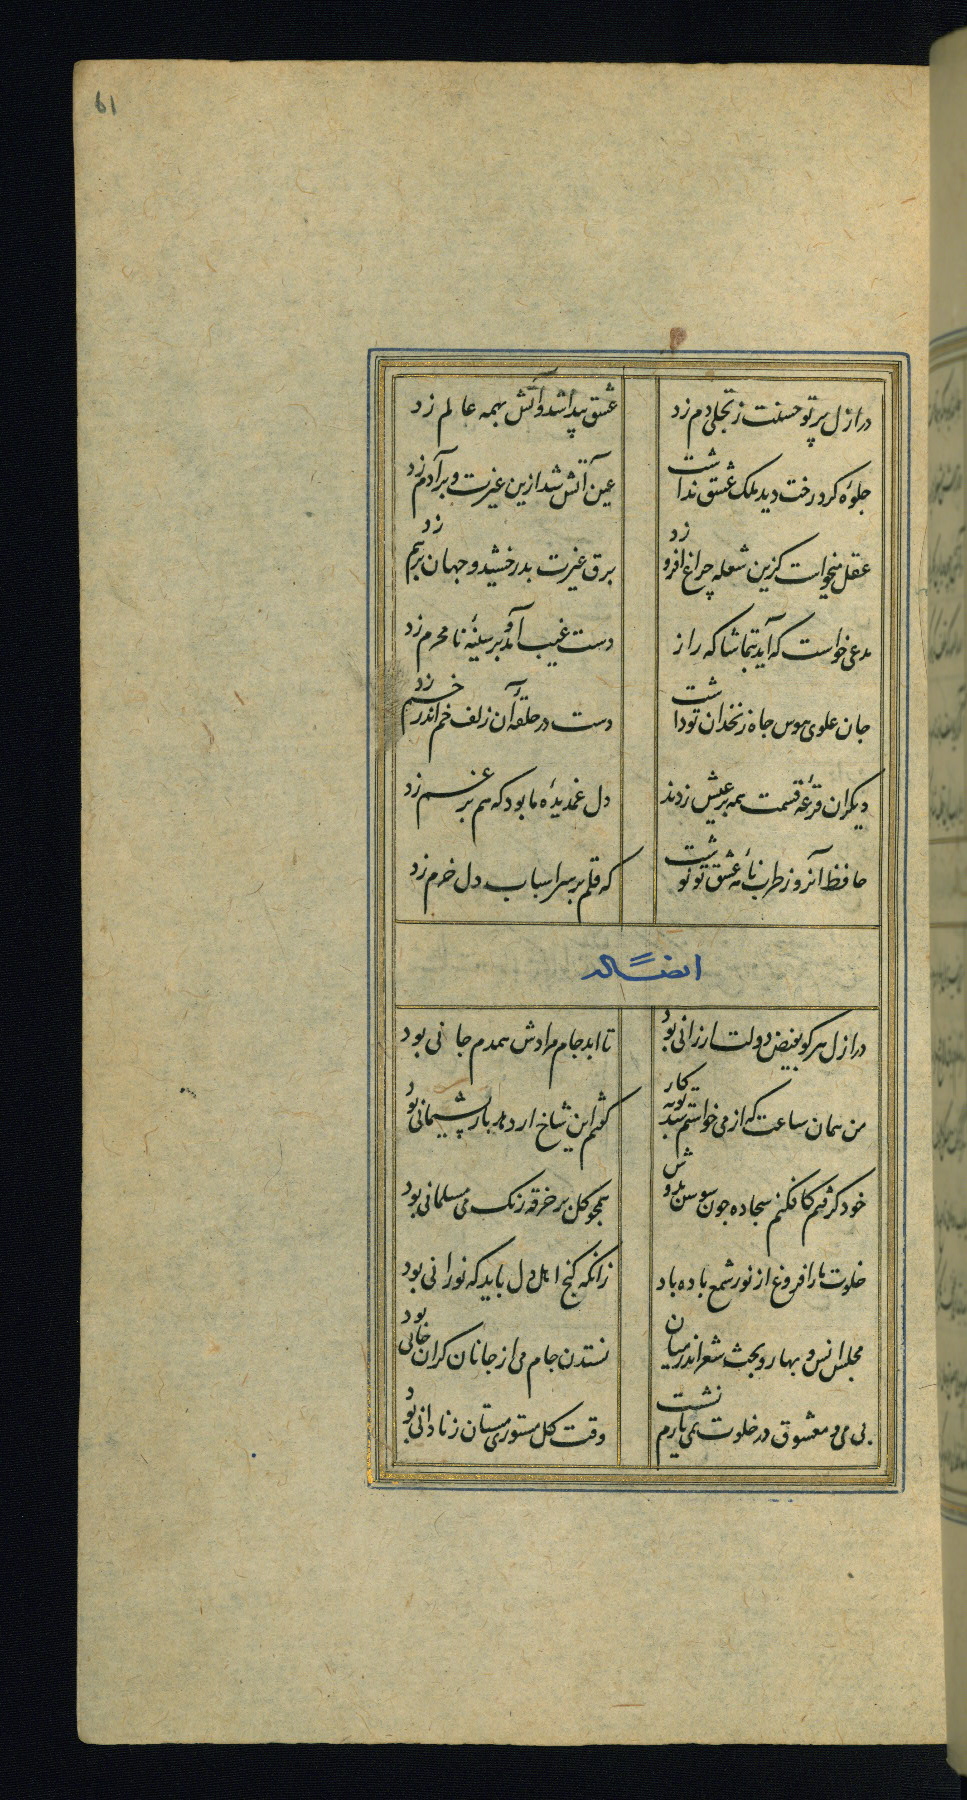 61
در ازل پرتو حسنت ز تجلی دم زد
عشق پیدا شد و آتش بهمه عالم زد
جلوهٔ کرد رخت دید ملک عشق نداشت
عین آتش شد ازین غیرت و بر آدم زد
عقل میخواست کزین شعله چراغ افروزد
برق غیرت بدرخشید و جهان برهم زد
مدعی خواست که آید بتماشاکه راز
دست غیب آمد و بر سینهٔ نامحرم زد
جان علوی هوس چاه زنخدان تو داشت
دست در حلقهٔ آن زلف خم اندر خم زد
دیکران قرعهٔ قسمت همه بر عیش زدند
دل غمدیدهٔ ما بود که هم بر غم زد
حافظ آنروز طرب نامهٔ عشق تو نوشت
که قلم بر سر اسباب دل خرم زد
ایضاً له
در ازل هر کو بفیض دولت ارزانی بود
تا ابد جام مرادش همدم جانی بود
من همان ساعت که از می خواستم شد توبه کار
کفتم این شاخ ار دهد بار پشیمانی بود
خود کرفتم کافکنم سجاده چون سوسن بدوش
همچو کل بر خرقه رنک می مسلمانی بود
خلوت ما را فروغ از نور شمع باده باد
زانکه کنج اهل دل باید که نورانی بود
مجلس انس و بهار و بحث شعر اندر میان
نستدن جام می از جانان کران جانی بود
بی می و معشوق در خلوت نمی یارم نشست
وقت کل مستوری مستان ز نادانی بود